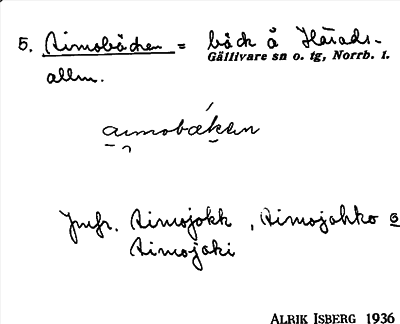 5. Aimobäcken = bäck å Härads-
Gällivare sn o. tg, Norrb. l.
allm.
aimobäkən
Jmfr. Aimojokk, Aimojohko o
Aimojoki
ALRIK ISBERG 1936